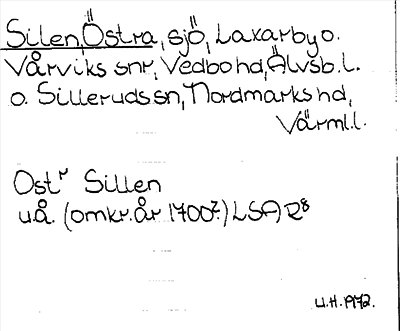 Silen, Östra, sjö, Laxarby o.
Vårviks snr, Vedbo hd, Älvsb. l.
o. Silleruds sn, Nordmarks hd,
Värml. l.
Ostʳ Sillen
u.å. (omkr. år 1700?) LSA R⁸
U.H. 1972.